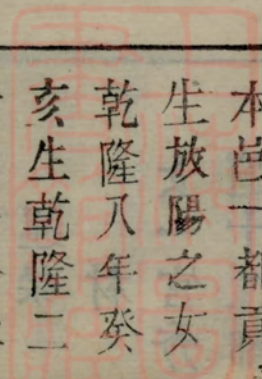 本邑一都貢
生放陽之女
乾隆八年癸
亥生乾隆二